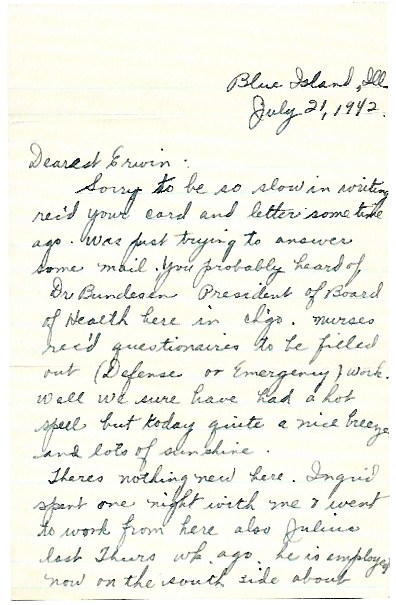 Blue Island, Ill.
July 21, 1942.
Dearest Erwin:
Sorry to be so slow in writing
rec'd your card and letter sometime
ago. Was just trying to answer
some mail. You probably heard of
Dr Bundesen President of Board
of Health here in ch'go. nurses
rec'd questionaires to be filled
out (Defense or Emergency) work.
Well we sure have had a hot
spell but today quite a nice breeze
and lots of sunshine.
Theres nothing new here. Ingrid
spent one night with me & went
to work from here also Julius
last Thurs wk. ago. he is employed
now on the south side about